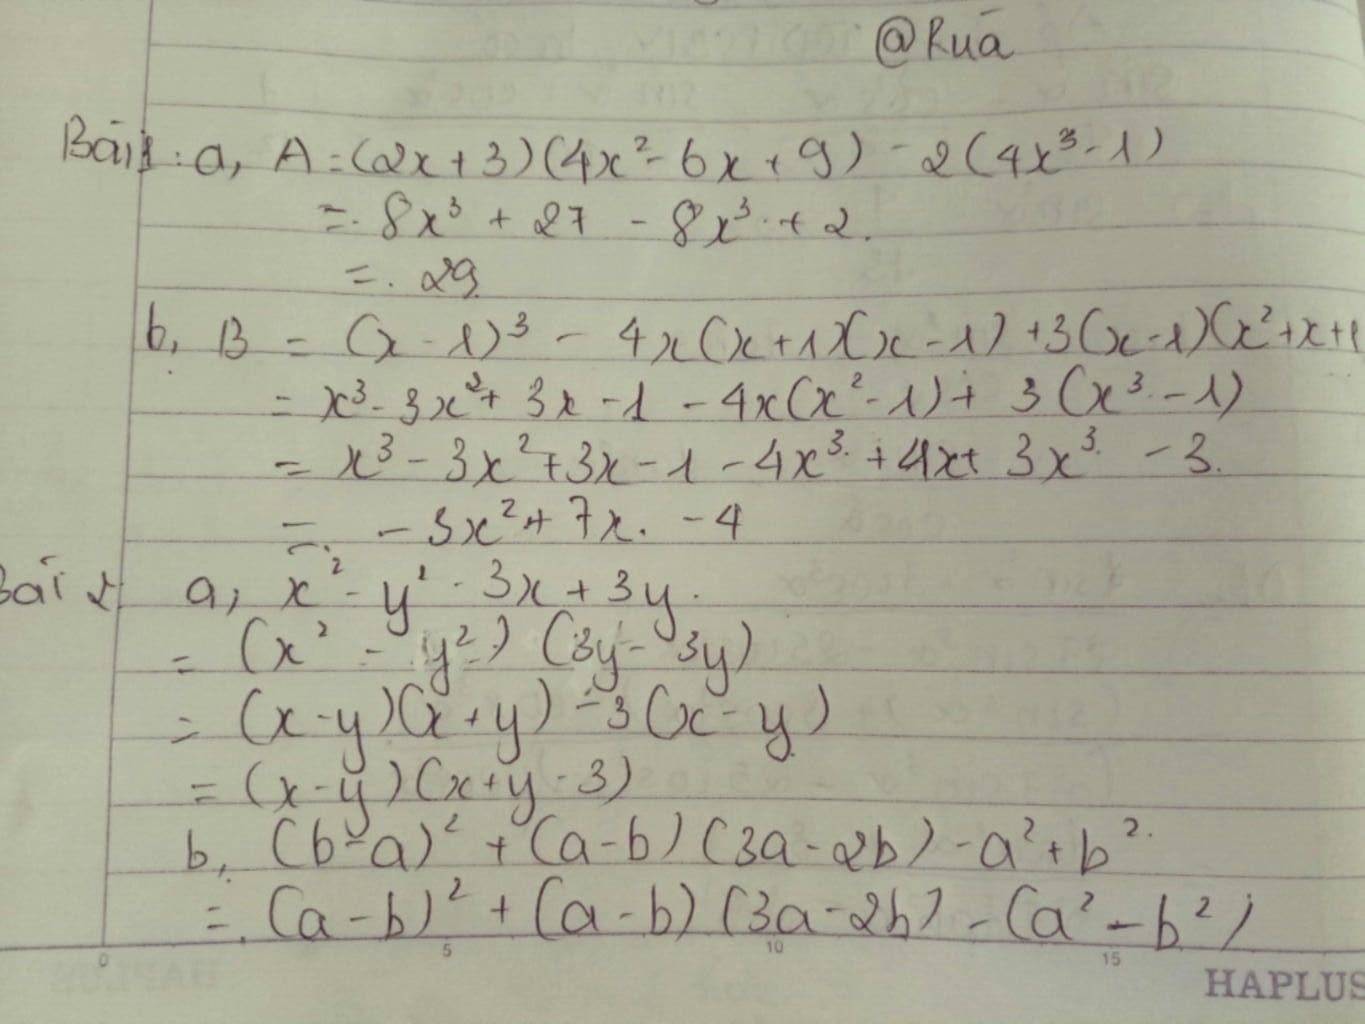 @Rùa
Bài 1: a, A = (2x + 3)(4x² - 6x + 9) - 2(4x³ - 1)
= 8x³ + 27 - 8x³ + 2.
= 29
b, B = (x - 1)³ - 4x(x + 1)(x - 1) + 3(x - 1)(x² + x + 1
= x³ - 3x² + 3x - 1 - 4x(x² - 1) + 3(x³ - 1)
= x³ - 3x² + 3x - 1 - 4x³ + 4x + 3x³ - 3.
= - 3x² + 7x - 4
Bài 2 a, x² - y² - 3x + 3y.
= (x² - y²) (3y - 3y)
= (x - y)(x + y) - 3(x - y)
= (x - y)(x + y - 3)
b, (b - a)² + (a - b)(3a - 2b) - a² + b².
= (a - b)² + (a - b)(3a - 2b) - (a² - b²)
0 5 10 15
HAPLUS